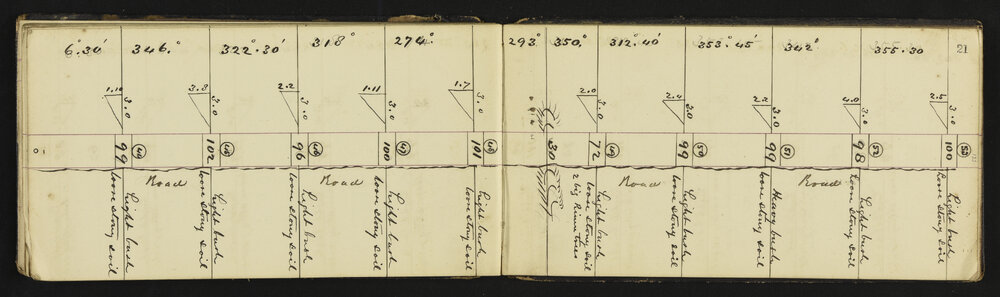 6°.30′ 346° 322°.30′ 318° 274° 293° 350° 312°.40′ 353°.45′ 342° 355.30 21
1.10 3.0 3.8 3.0 2.2 3.0 1.11 3.0 1.7 3.0 2.0 3.0 2.4 3.0 2.2 3.0 4.0 3.0 2.5 3.0
99 102 96 100 101 30 72 99 99 98 100
Road Road Road Road
Light bush
loose stony soil
Light bush
loose stony soil
Light bush
loose stony soil
Light bush
loose stony soil
Light bush
loose stony soil
Light bush
loose stony soil
2 big Rimu trees
Light bush
loose stony soil
Heavy bush
loose stony soil
Light bush
loose stony soil
Light bush
loose stony soil